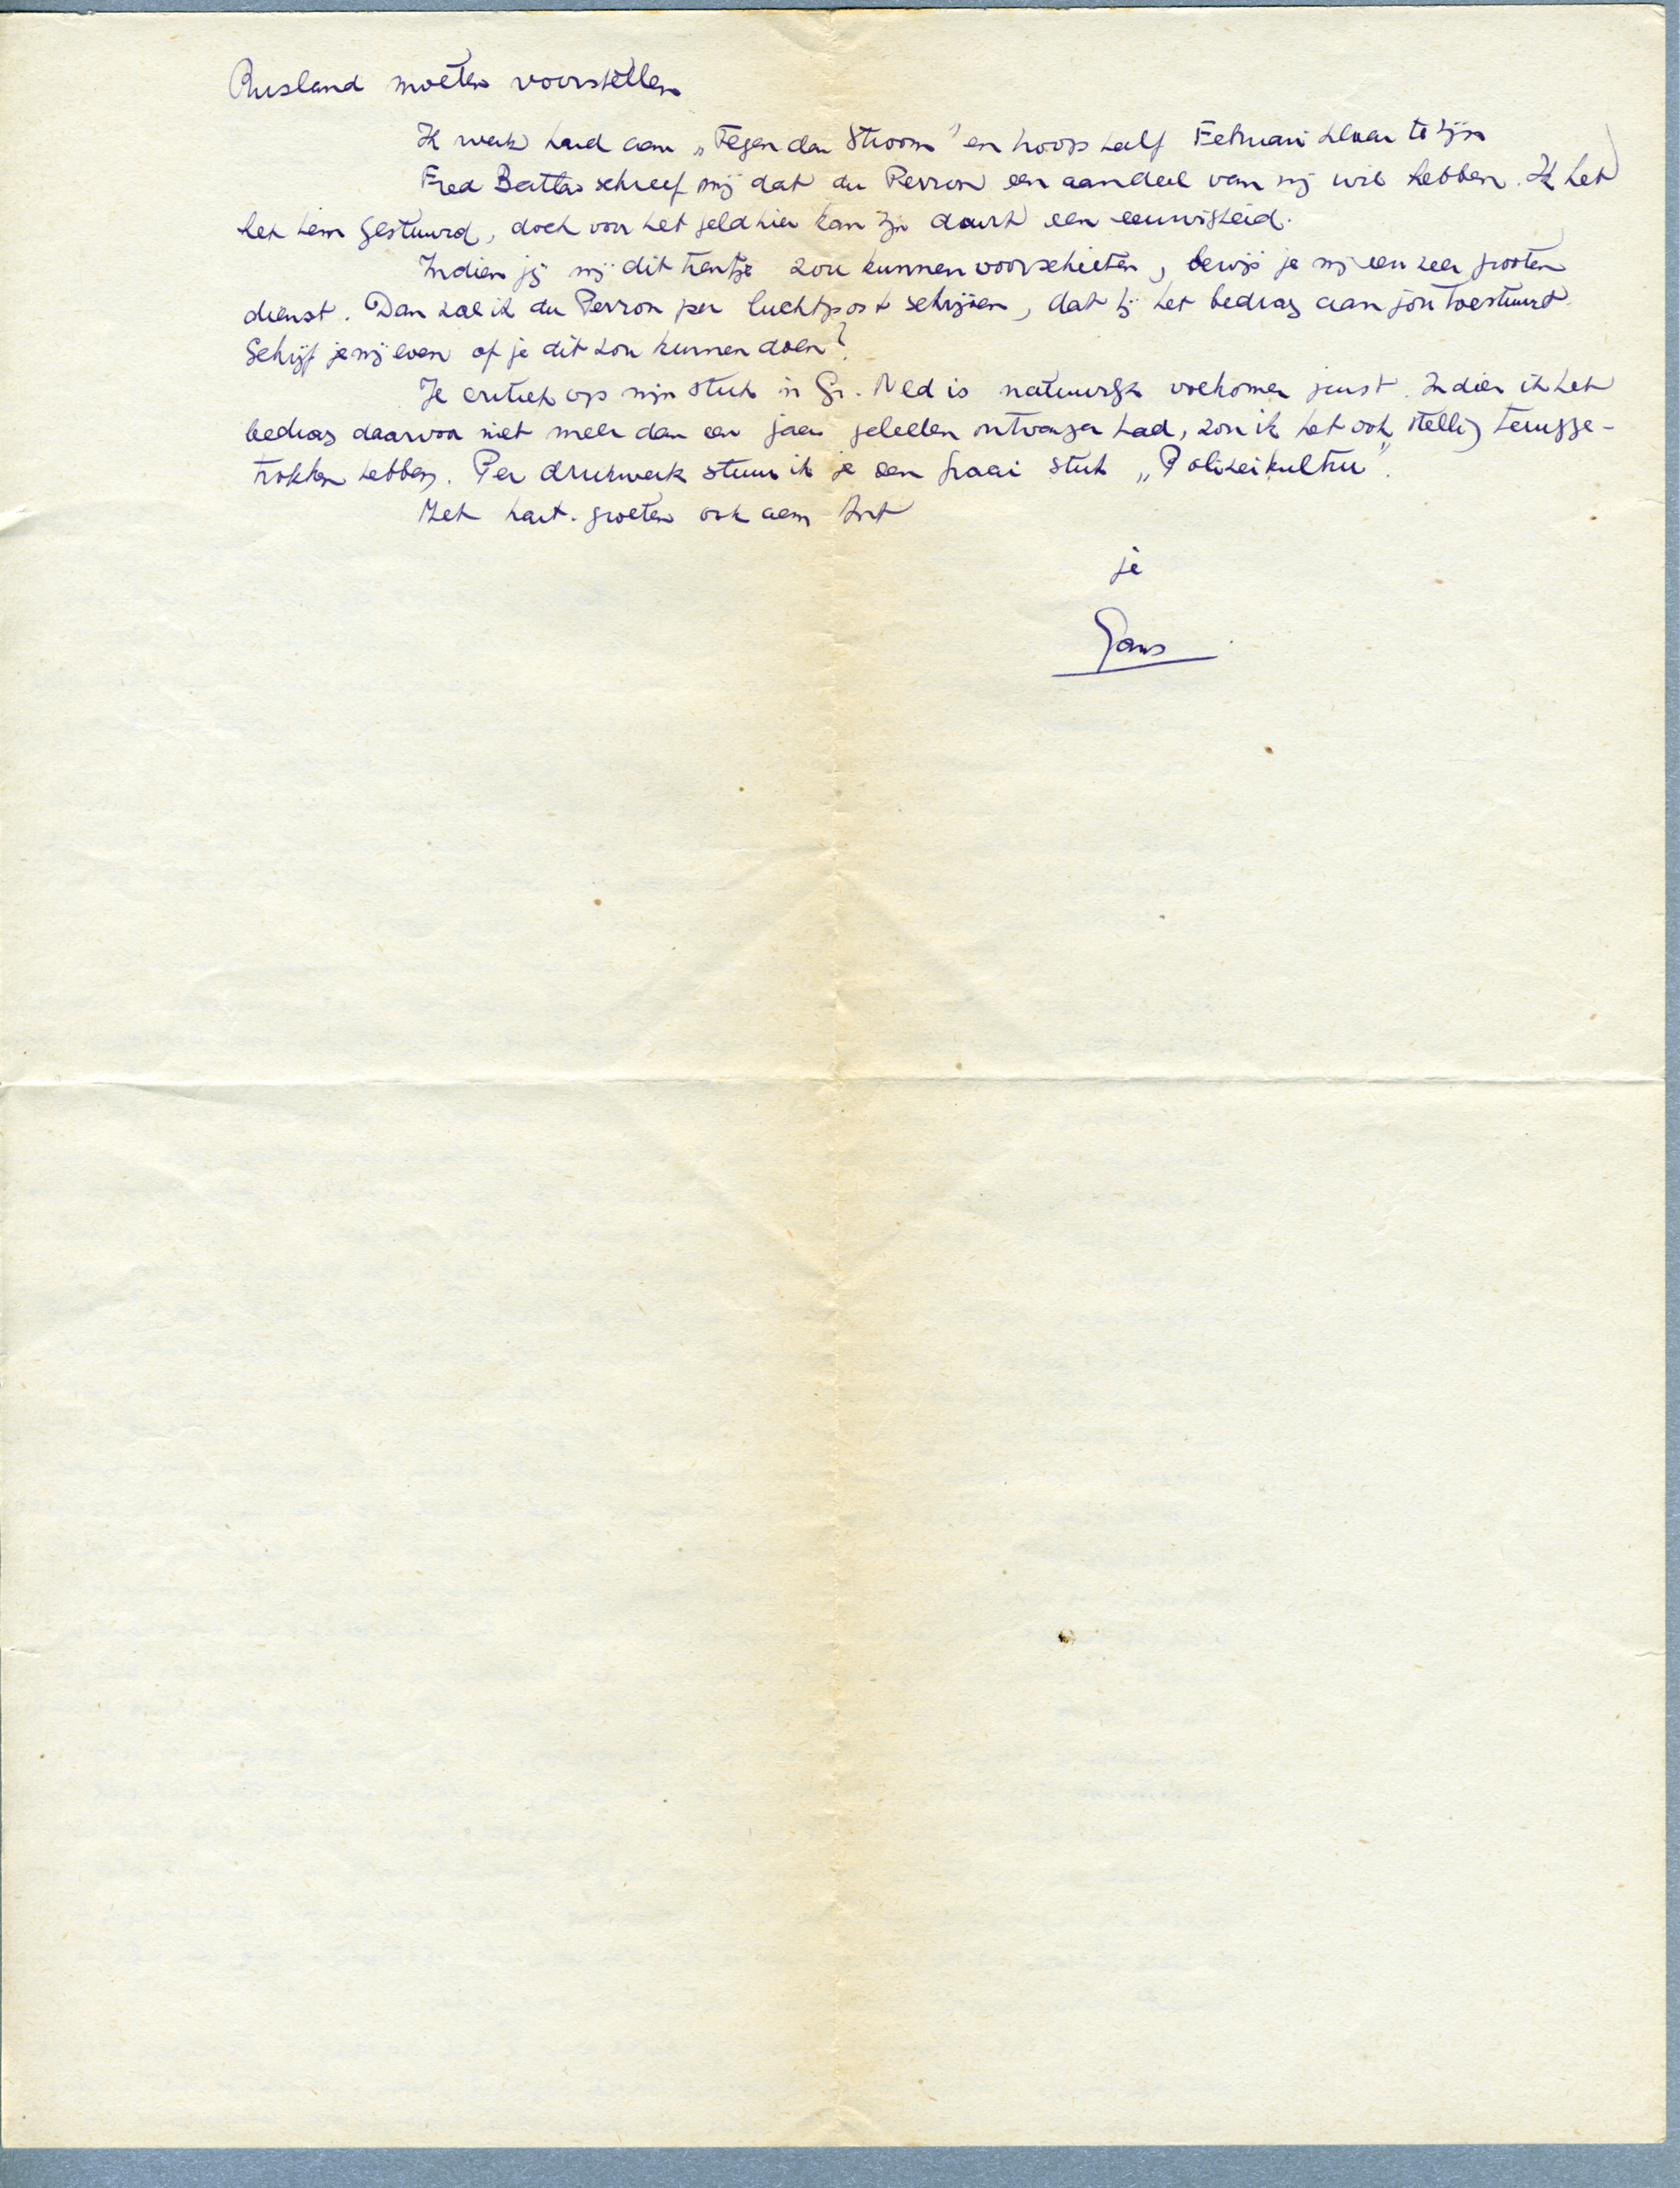 Rusland moeten voorstellen
Ik werk hard aan „Tegen den Stroom" en hoop half Februari klaar te zijn
Fred Battes schreef mij dat du Perron een aandeel van mij wil hebben. Ik heb
het hem gestuurd, doch voor het geld hier kan zijn duurt een eeuwigheid.
Indien jij mij dit tientje zou kunnen voorschieten, bewijs je mij een zeer grooten
dienst. Dan zal ik du Perron per luchtpost schrijven, dat hij het bedrag aan jou toestuurt.
Schrijf je mij even of je dit zou kunnen doen?
Je critiek op mijn stuk in Gr. Ned is natuurlijk volkomen juist. Indien ik het
bedrag daarvoor niet meer dan een jaar geleden ontvangen had, zou ik het ook stellig terugge-
trokken hebben. Per drukwerk stuur ik je een fraai stuk „Polizeikultur".
Met hart. groeten ook aan Ant
je
Gans